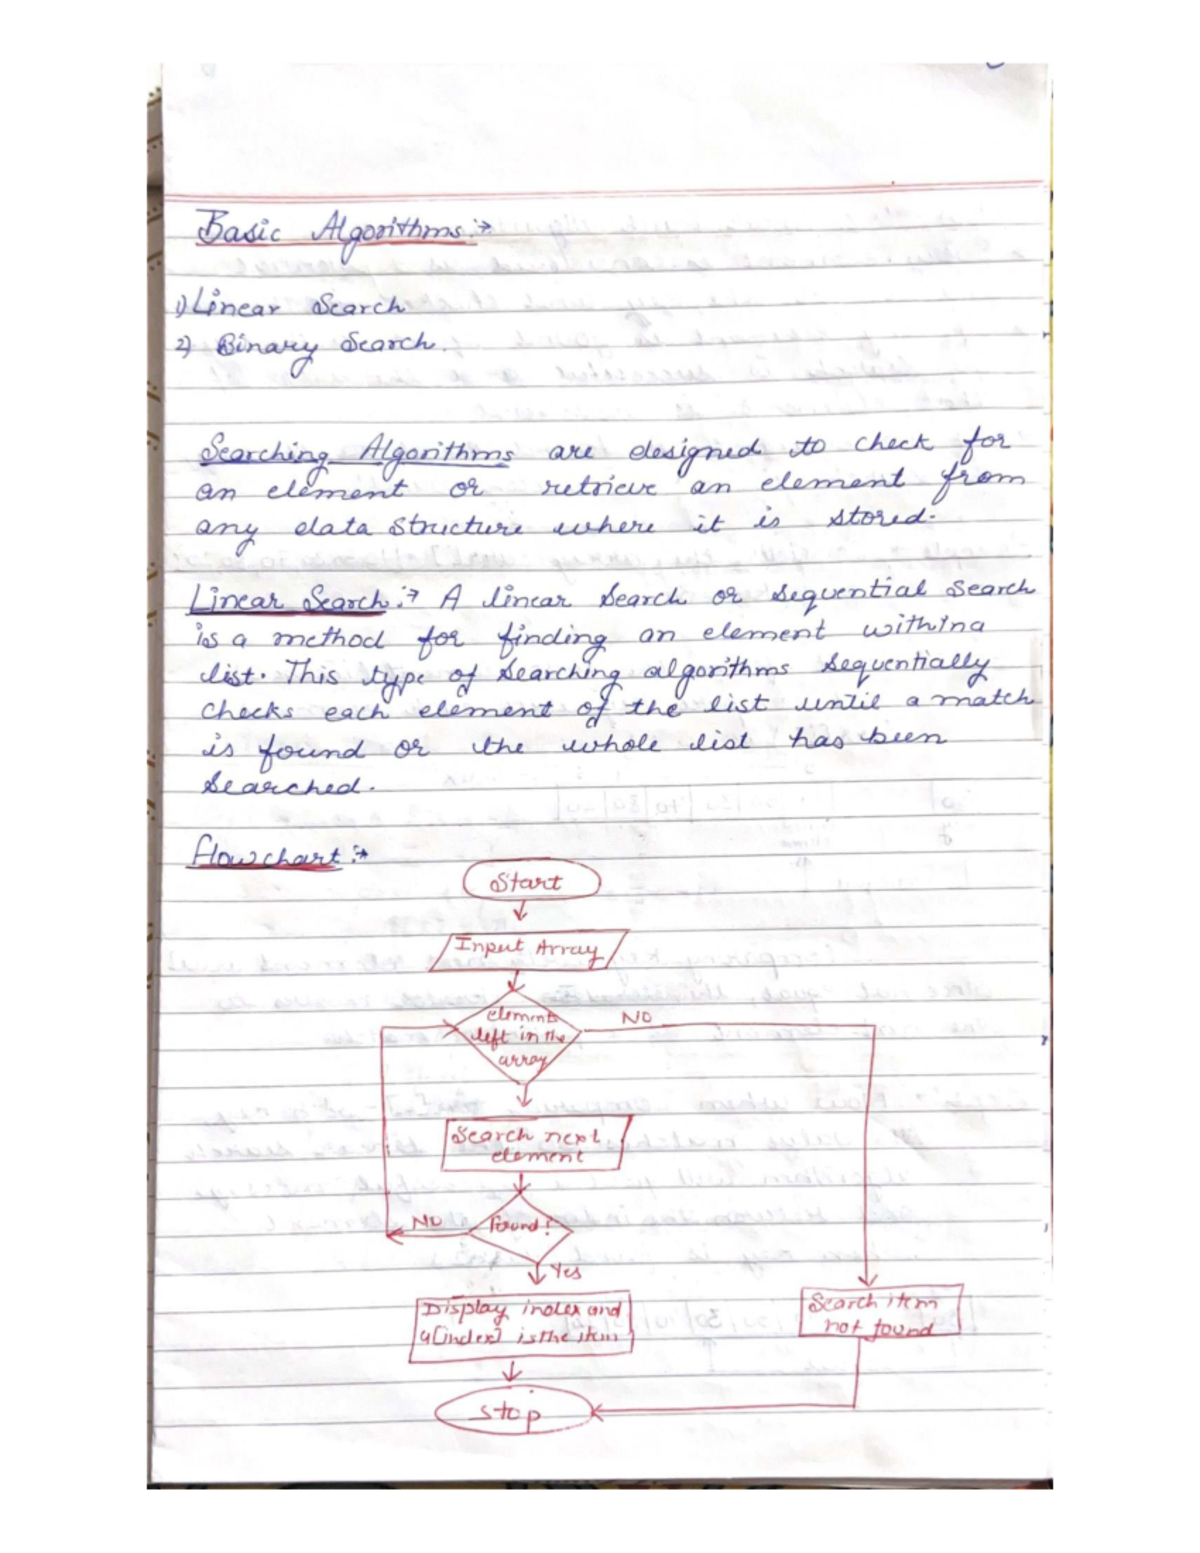 Basic Algorithms :→
1) Linear Search
2) Binary Search.
Searching Algorithms are designed to check for
an element or retrieve an element from
any data structure where it is stored.
Linear Search :→ A linear search or sequential search
is a method for finding an element within a
list. This type of searching algorithms sequentially
checks each element of the list until a match
is found or the whole list has been
searched.
Flowchart :→
Start
Input Array
elements
left in the
array
NO
Search next
element
Found?
NO
Yes
Display index and
a[index] is the item
Search item
not found
Stop